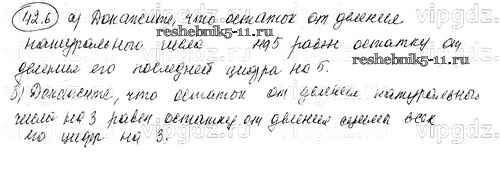 42.6 а) Докажите, что остаток от деления
натурального числа на 5 равен остатку от
reshebnik5-11.ru reshebnik5-11.ru
деления его последней цифры на 5.
б) Докажите, что остаток от деления натурального
числа на 3 равен остатку от деления суммы всех
его цифр на 3.
vipgdz.ru